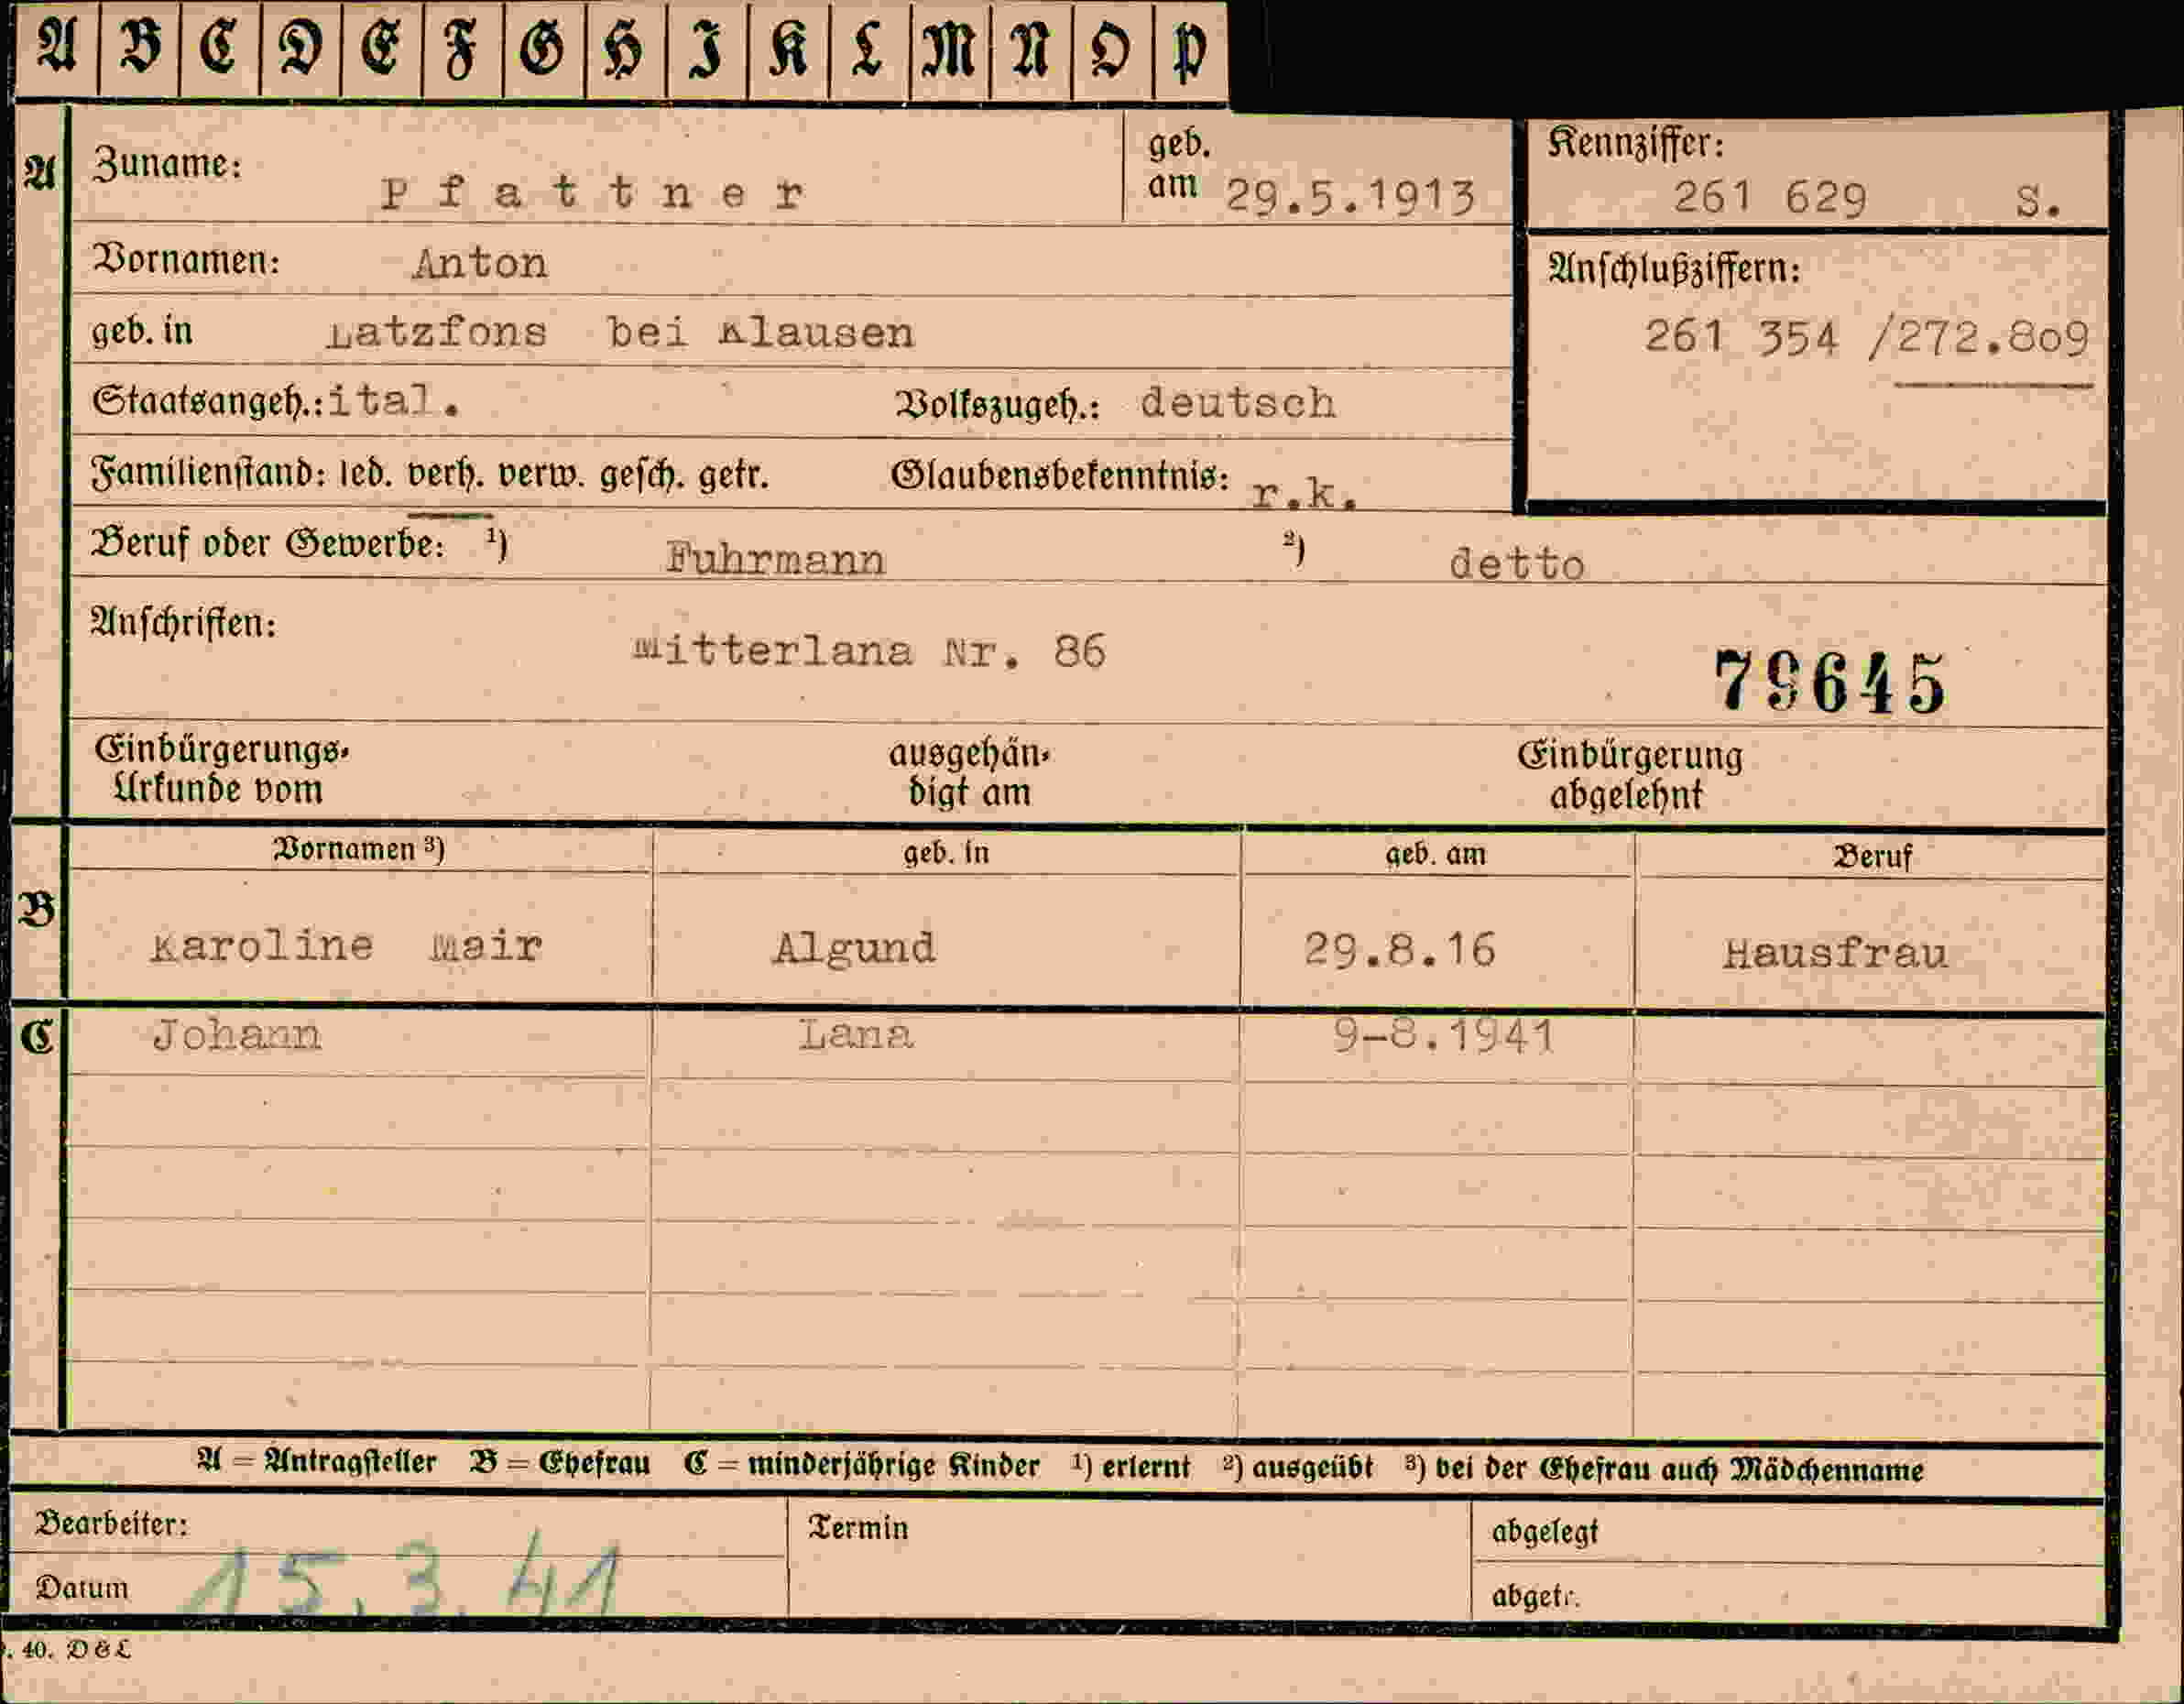 A B C D E F G H I K L M N O P
A Zuname: Pfattner geb. am 29.5.1913 Kennziffer: 261 629 S.
Vornamen: Anton Anschlußziffern:
geb. in Latzfons bei Klausen 261 354 /272.809
Staatsangeh.: ital. Volkszugeh.: deutsch
Familienstand: led. verh. verw. gesch. getr. Glaubensbekenntnis: r.k.
Beruf oder Gewerbe: 1) Fuhrmann 2) detto
Anschriften: Mitterlana Nr. 86 79645
Einbürgerungs- ausgehän- Einbürgerung
Urkunde vom digt am abgelehnt
Vornamen 3) geb. in geb. am Beruf
B Karoline Mair Algund 29.8.16 Hausfrau
C Johann Lana 9-8.1941
A = Antragsteller B = Ehefrau C = minderjährige Kinder 1) erlernt 2) ausgeübt 3) bei der Ehefrau auch Mädchenname
Bearbeiter: Termin abgelegt
Datum 15.3.41 abgetr.
. 40. D & L